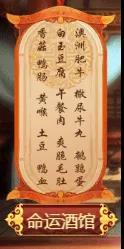 澳洲肥牛 撒尿牛丸 鹌鹑蛋
白玉豆腐 午餐肉 爽脆毛肚
香菇 鸭肠 黄喉 土豆 鸭血
命运酒馆